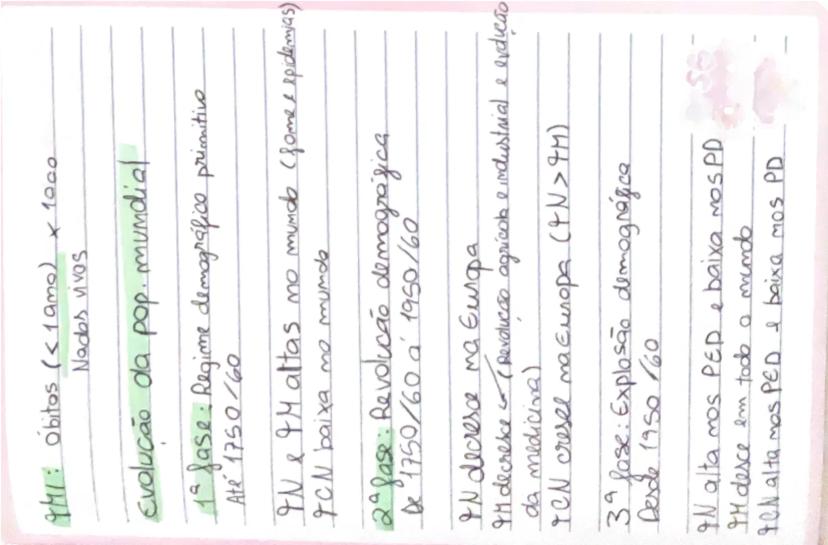 TMI: Óbitos (<1 ano) x 1000
Nados vivos
Evolução da pop. mundial
1ª fase: Regime demográfico primitivo
Até 1750/60
TN e TM altas no mundo (fome e epidemias)
TCN baixa no mundo
2ª fase: Revolução demográfica
De 1750/60 a 1950/60
TN decresce na Europa
TM decresce (Revolução agrícola e industrial e evolução
da medicina)
TCN cresce na Europa (TN>TM)
3ª fase: Explosão demográfica
Desde 1950/60
TN alta nos PED e baixa nos PD
TM desce em todo o mundo
TCN alta nos PED e baixa nos PD